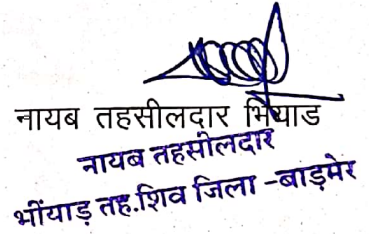 नायब तहसीलदार भियाड
नायब तहसीलदार
भींयाड़ तह.शिव जिला -बाड़मेर